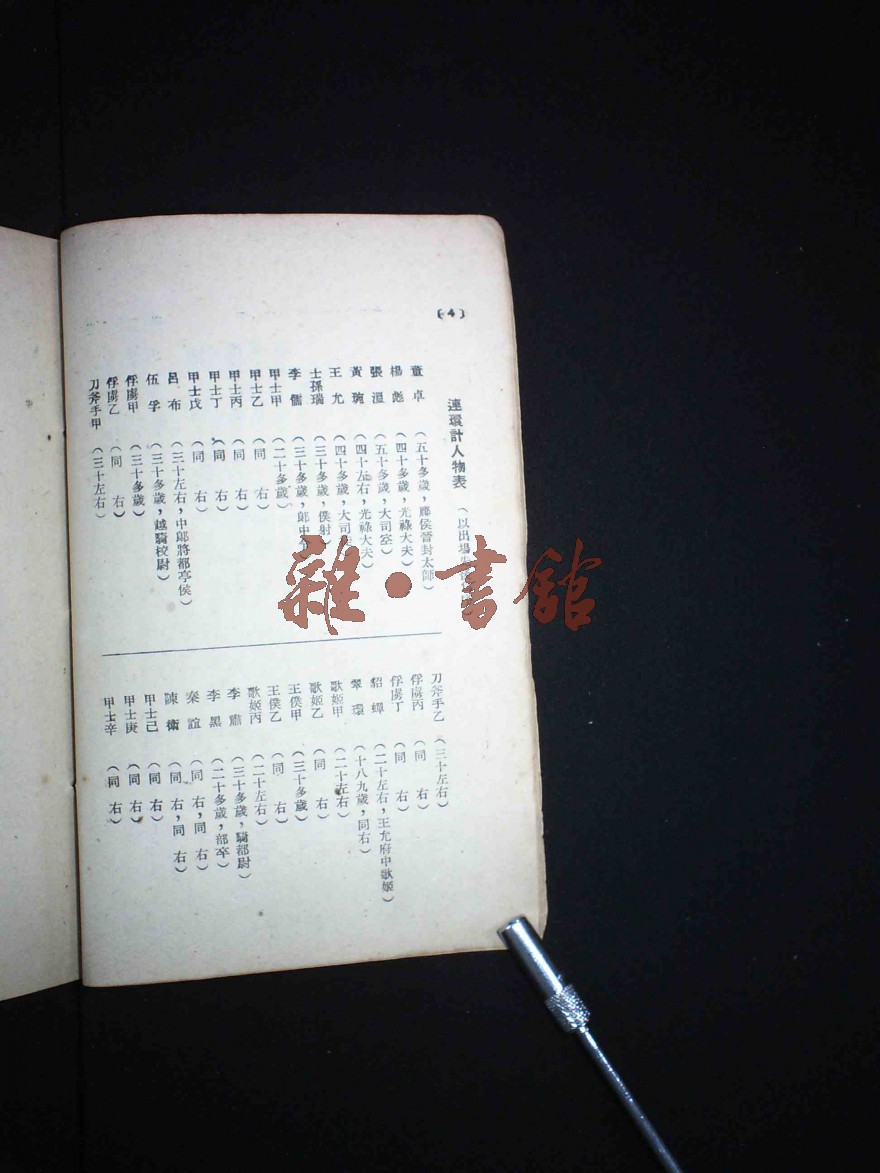 (4)
連環計人物表 (以出場
董卓 (五十多歲,郿侯晉封太師)
楊彪 (四十多歲,光祿大夫)
張溫 (五十多歲,大司空)
黃琬 (四十左右,光祿大夫)
王允 (四十多歲,大司
士孫瑞 (三十多歲,僕射)
李儒 (三十多歲,郎中
甲士甲 (二十多歲)
甲士乙 (同 右)
甲士丙 (同 右)
甲士丁 (同 右)
甲士戊 (同 右)
呂布 (三十左右,中郎將都亭侯)
伍孚 (三十多歲,越騎校尉)
俘虜甲 (三十多歲)
俘虜乙 (同 右)
刀斧手甲 (三十左右)
刀斧手乙 (三十左右)
俘虜丙 (同 右)
俘虜丁 (同 右)
貂蟬 (二十左右,王允府中歌姬)
翠環 (十八九歲,同右)
歌姬甲 (二十左右)
歌姬乙 (同 右)
王僕甲 (三十多歲)
王僕乙 (同 右)
歌姬丙 (二十左右)
李肅 (三十多歲,騎都尉)
李黑 (二十多歲,部卒)
秦誼 (同 右,同 右)
陳衛 (同 右,同 右)
甲士己 (同 右)
甲士庚 (同 右)
甲士辛 (同 右)
雜·書館